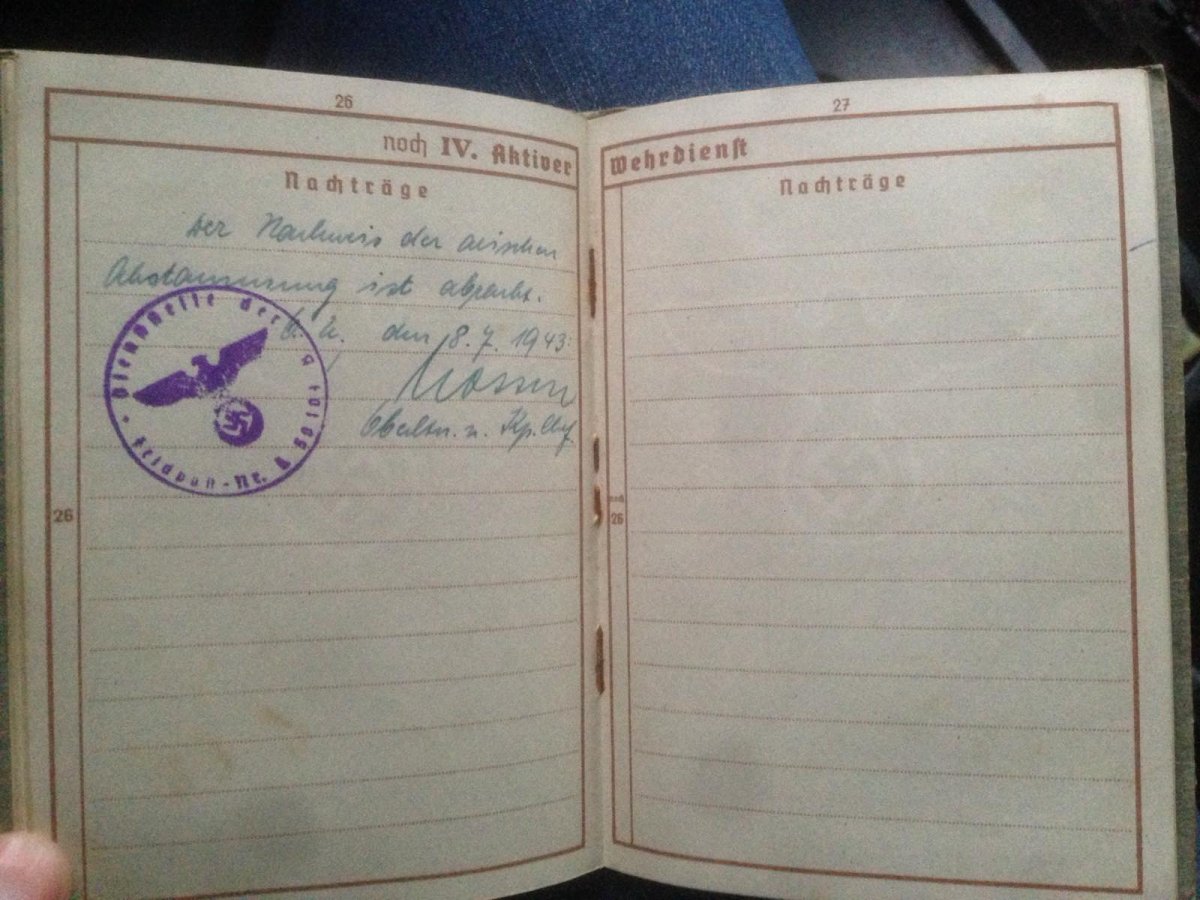 26
noch IV. Aktiver
Nachträge
Der Nachweis der arischen
Abstammung ist
den 8. 7. 1943.
Oberltn. u. Kp.
Dienststelle der
Feldpost-Nr.
26
27
Wehrdienst
Nachträge
noch
26